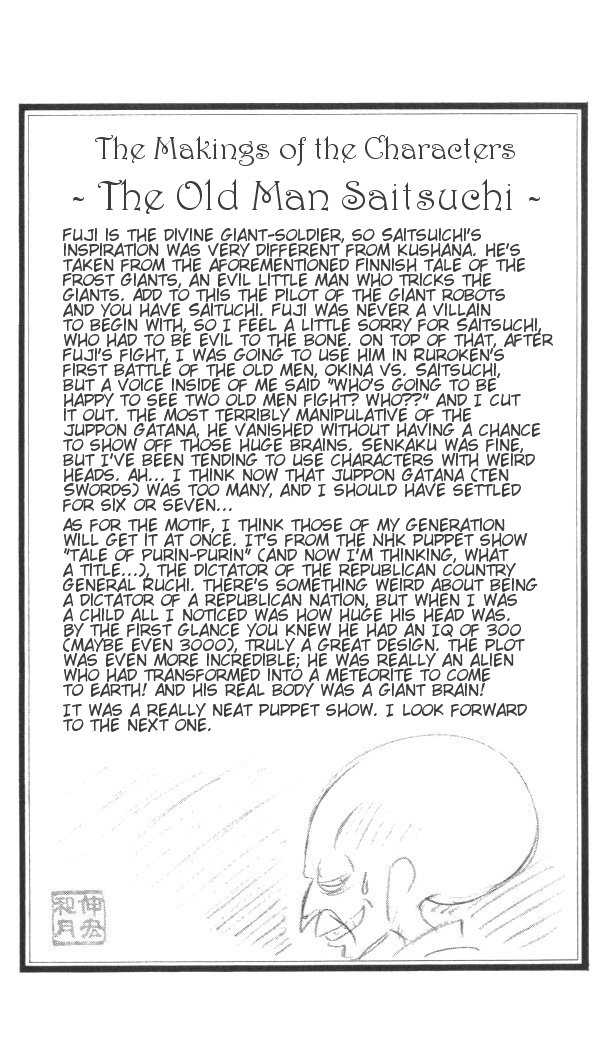 The Makings of the Characters
~ The Old Man Saitsuchi ~
FUJI IS THE DIVINE GIANT-SOLDIER, SO SAITSUICHI'S
INSPIRATION WAS VERY DIFFERENT FROM KUSHANA. HE'S
TAKEN FROM THE AFOREMENTIONED FINNISH TALE OF THE
FROST GIANTS, AN EVIL LITTLE MAN WHO TRICKS THE
GIANTS. ADD TO THIS THE PILOT OF THE GIANT ROBOTS
AND YOU HAVE SAITUCHI. FUJI WAS NEVER A VILLAIN
TO BEGIN WITH, SO I FEEL A LITTLE SORRY FOR SAITSUCHI,
WHO HAD TO BE EVIL TO THE BONE. ON TOP OF THAT, AFTER
FUJI'S FIGHT, I WAS GOING TO USE HIM IN RUROKEN'S
FIRST BATTLE OF THE OLD MEN, OKINA VS. SAITSUCHI,
BUT A VOICE INSIDE OF ME SAID "WHO'S GOING TO BE
HAPPY TO SEE TWO OLD MEN FIGHT? WHO??" AND I CUT
IT OUT. THE MOST TERRIBLY MANIPULATIVE OF THE
JUPPON GATANA, HE VANISHED WITHOUT HAVING A CHANCE
TO SHOW OFF THOSE HUGE BRAINS. SENKAKU WAS FINE,
BUT I'VE BEEN TENDING TO USE CHARACTERS WITH WEIRD
HEADS. AH... I THINK NOW THAT JUPPON GATANA (TEN
SWORDS) WAS TOO MANY, AND I SHOULD HAVE SETTLED
FOR SIX OR SEVEN...
AS FOR THE MOTIF, I THINK THOSE OF MY GENERATION
WILL GET IT AT ONCE. IT'S FROM THE NHK PUPPET SHOW
"TALE OF PURIN-PURIN" (AND NOW I'M THINKING, WHAT
A TITLE...), THE DICTATOR OF THE REPUBLICAN COUNTRY
GENERAL RUCHI. THERE'S SOMETHING WEIRD ABOUT BEING
A DICTATOR OF A REPUBLICAN NATION, BUT WHEN I WAS
A CHILD ALL I NOTICED WAS HOW HUGE HIS HEAD WAS.
BY THE FIRST GLANCE YOU KNEW HE HAD AN IQ OF 300
(MAYBE EVEN 3000), TRULY A GREAT DESIGN. THE PLOT
WAS EVEN MORE INCREDIBLE; HE WAS REALLY AN ALIEN
WHO HAD TRANSFORMED INTO A METEORITE TO COME
TO EARTH! AND HIS REAL BODY WAS A GIANT BRAIN!
IT WAS A REALLY NEAT PUPPET SHOW. I LOOK FORWARD
TO THE NEXT ONE.
伸宏
和月